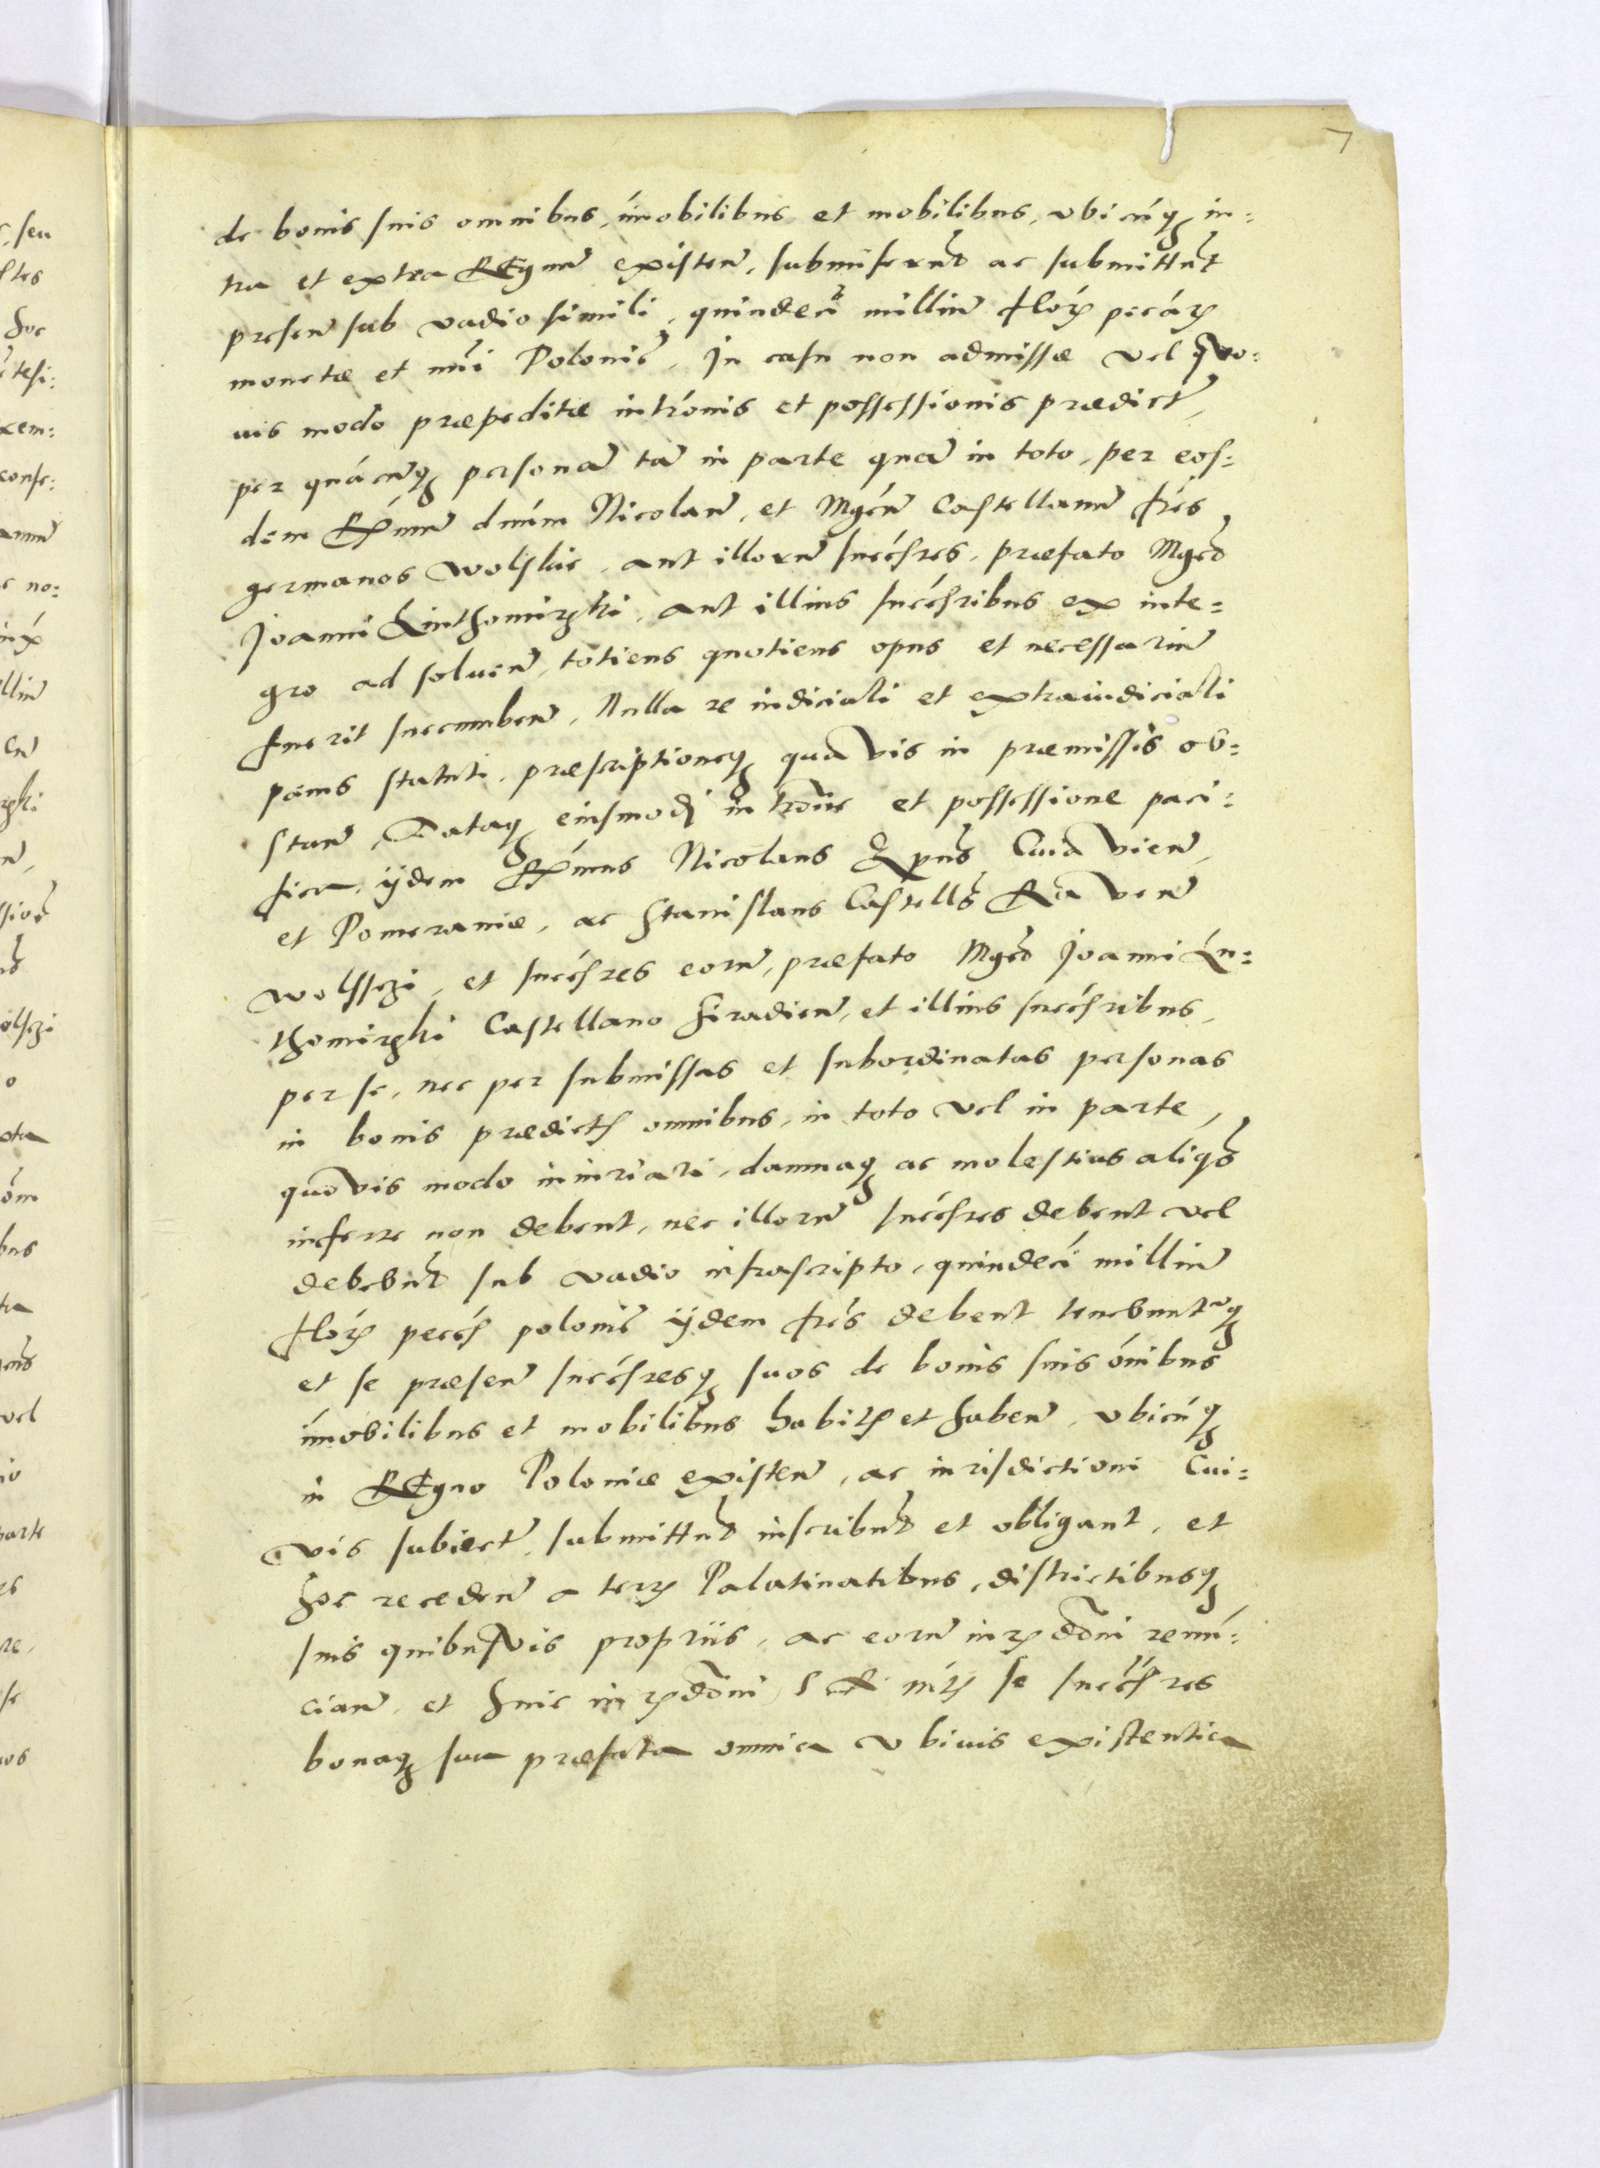 7
de bonis suis omnibus, im̄obilibus et mobilibus, vbicūq₃ in=
tra et extra Regnu͂ existen͂, submiserūt ac submittūt
presen͂ sub vadio simili, quindecī milliu͂ floꝝ pecāꝝ
monetæ et nūi Polonic͂, In casu non admissæ vel quo=
uis modo præpeditæ intrōnis et possessionis prædict͂,
per quācūq₃ persona͂ ta͂ in parte qua͂ in toto, per eos=
dem Rn̄um dnūm Nicolau͂, et Mgcu͂ Castellanu͂ frēs
germanos Wolskie, aut illoru͂ succēsres, præfato Mgco
Joanni Linthomirzski, aut illius succēsribus ex inte=
gro ad soluen͂, totiens quotiens opus et necessariu͂
fuerit succumben͂, Nulla re iudiciali et extraiudiciali
pænis statuti, præscriptioneq₃ quauis in præmissis ob=
stan͂, Dataq₃ eiusmodi intrōne et possessione paci=
fica, ijdem Rn̄dus Nicolaus Epūs Cuiauien͂,
et Pomeraniæ, ac Stanislaus Castellūs Rauen͂
Wolssczi, et succēsres eoru͂, præfato Mgco Joanni Lu=
thomirzski Castellano Siradien͂, et illius succēsribus,
per se, nec per submissas et subordinatas personas
in bonis prædictis omnibus, in toto vel in parte,
quouis modo iniuriari, damnaq₃ ac molestias aliqs
inferre non debent, nec illoru͂ succēsres debent vel
debebūt sub vadio infrascripto, quindecī milliu͂
floꝝ pecc͂ polonic͂ ijdem frēs debent tenebunturq₃
et se præsen͂ succēsresq₃ suos de bonis suis ōnibus
im̄obilibus et mobilibus habitis et haben͂, vbicūq₃
in Regno Poloniæ existen͂, ac iurisdictioni cui=
vis subiect͂, submittūt inscribūt et obligant, et
hoc receden͂ a terris Palatinatibus, districtibusq₃
suis quibusuis proprijs, ac eoru͂ iurisdōni renū=
cian͂, et huic iurisdōni se succēsres
bonaq₃ sua præfata omnia vbiuis existentia